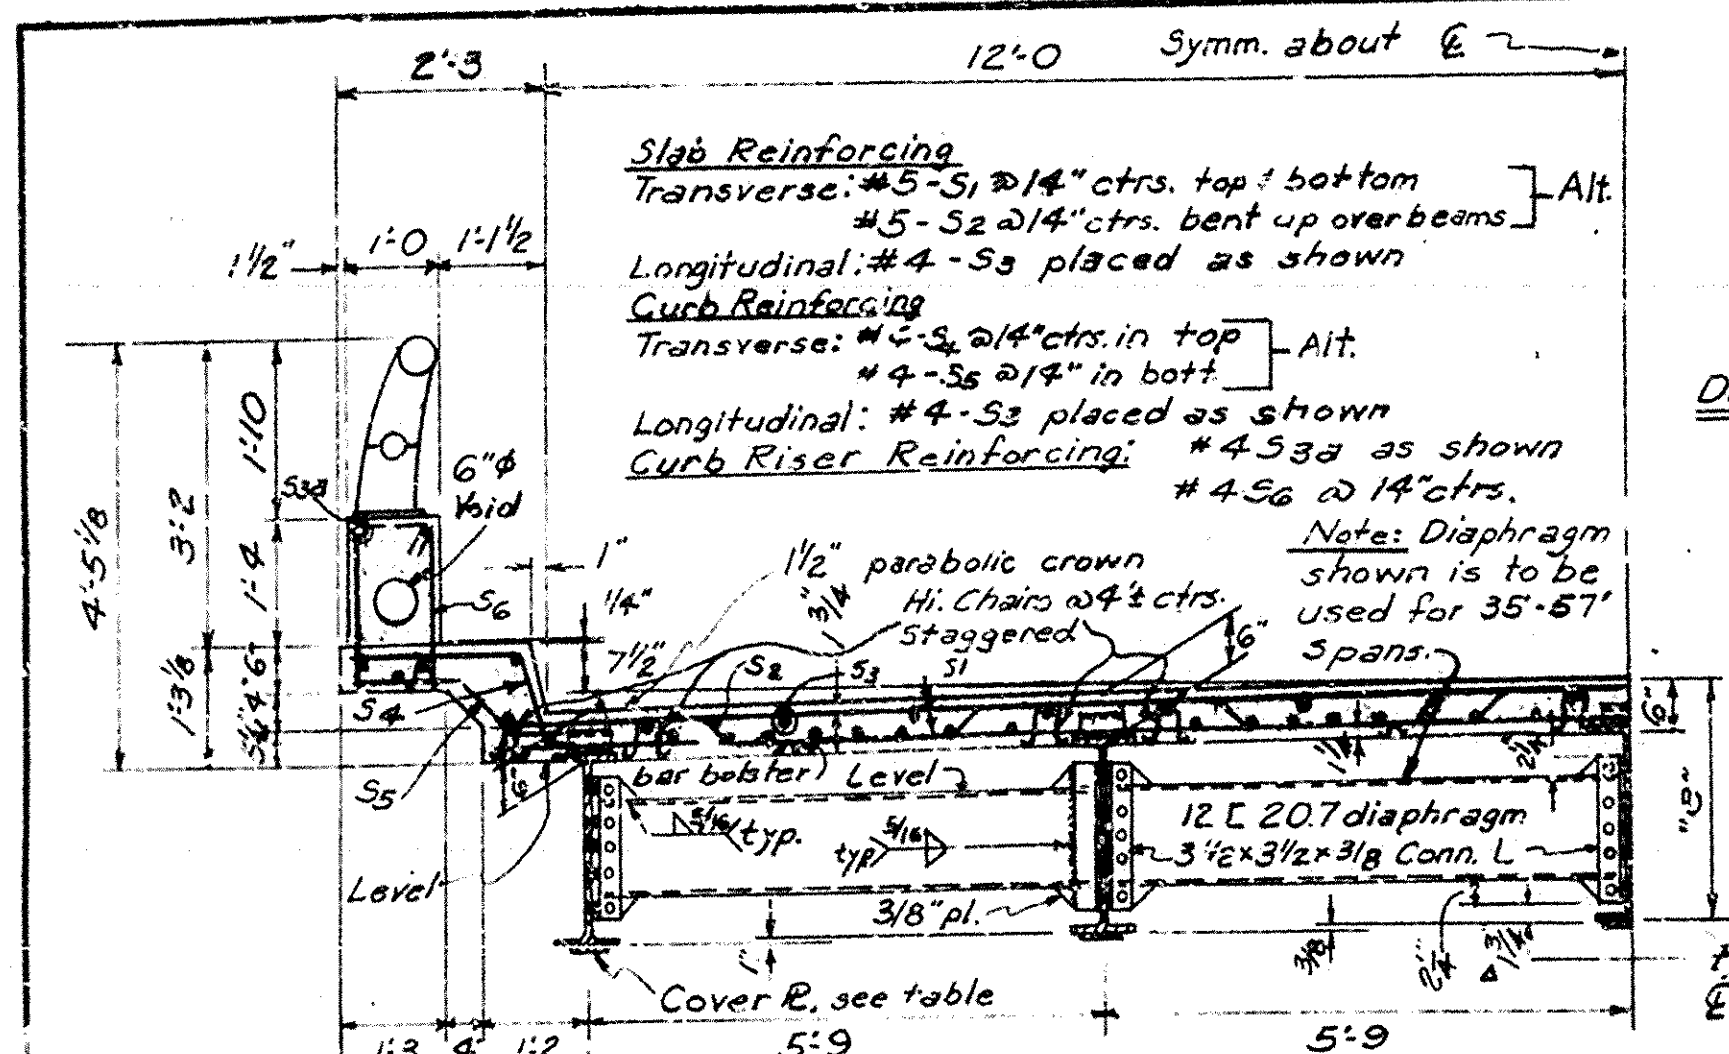 2'-3
12'-0
Symm. about ℄
Slab Reinforcing
Transverse: #5-S1 @ 14" ctrs. top & bottom
#5-S2 @ 14" ctrs. bent up over beams
Alt.
Longitudinal: #4-S3 placed as shown
Curb Reinforcing
Transverse: @ 14" ctrs. in top
#4-S5 @ 14" in bott
Alt.
Longitudinal: #4-S3 placed as shown
Curb Riser Reinforcing: #4 S3a as shown
#4 S6 @ 14" ctrs.
Note: Diaphragm
shown is to be
used for 35'-57'
spans.
1½"
1'-0
1'-1½
4'-5⅛
3'-2
1'-10
1'-4
6"
4"
1'-3⅛
S3a
6"ϕ
Void
S6
1"
¼"
7½"
1½" parabolic crown
3/4"
Hi. Chairs @ 4'± ctrs.
Staggered
6"
S2
S3
S1
S4
S5
6"
6"
bar bolster
Level
5/16
typ.
5/16
typ
12 [ 20.7 diaphragm
3½x3½x3/8 Conn. L
Level
3/8" pl.
1"
3/8
2¼"
Cover ℙ. see table
1'-3
4"
1'-2
5'-9
5'-9